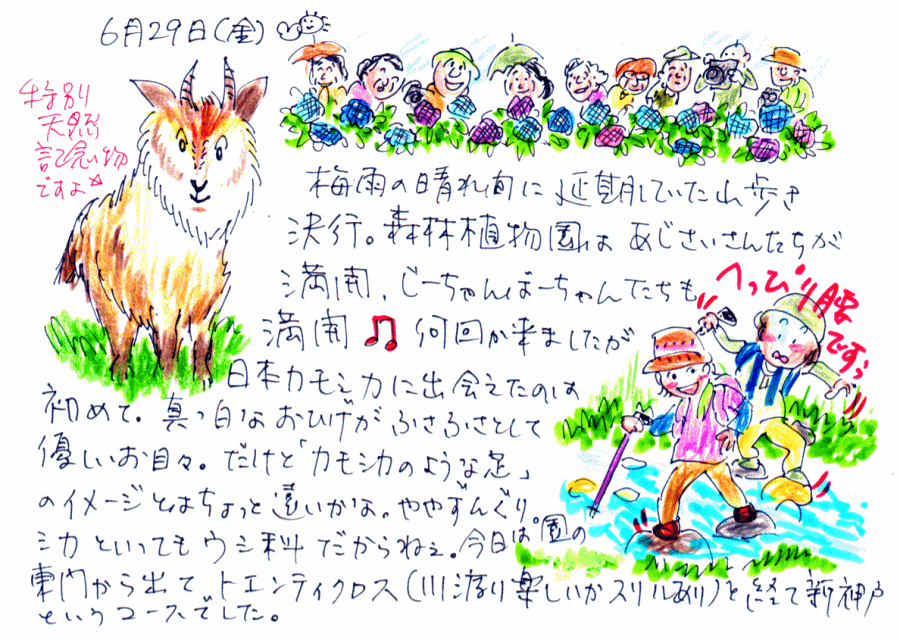 6月29日(金)
特別
天然
記念物
ですよ
梅雨の晴れ間に延期していた山歩き
決行。森林植物園はあじさいさんたちが
満開、じーちゃんばーちゃんたちも
満開♫何回か来ましたが
へっぴり腰
ですっ
日本カモシカに出会えたのは
初めて。真っ白なおひげがふさふさとして
優しいお目々。だけど「カモシカのような足」
のイメージとはちょっと遠いかな。ややずんぐり
シカといってもウシ科だからねぇ。今日は園の
東門から出て トエンティクロス(川渡り楽しいがスリルあり)を経て新神戸
というコースでした。